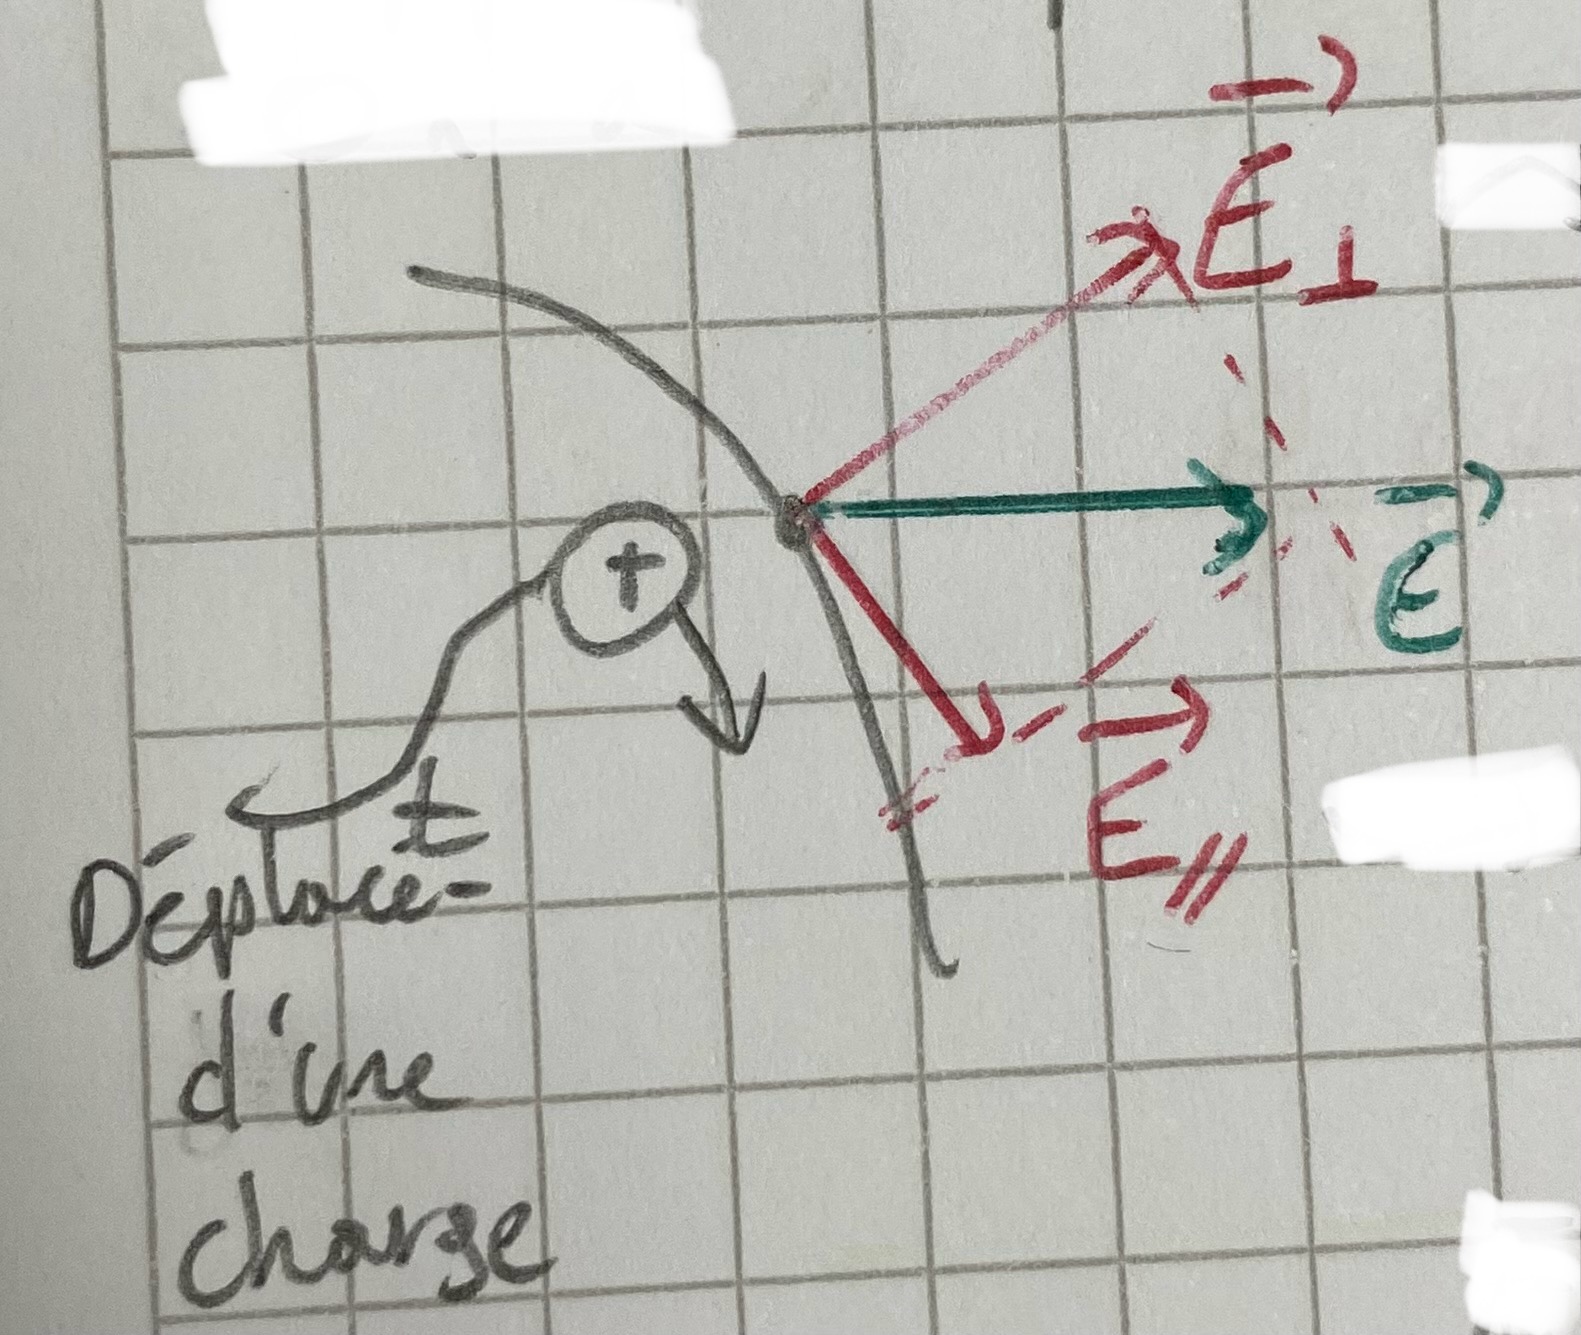 E⊥
E
+
E//
Déplace-t
d'une
charge